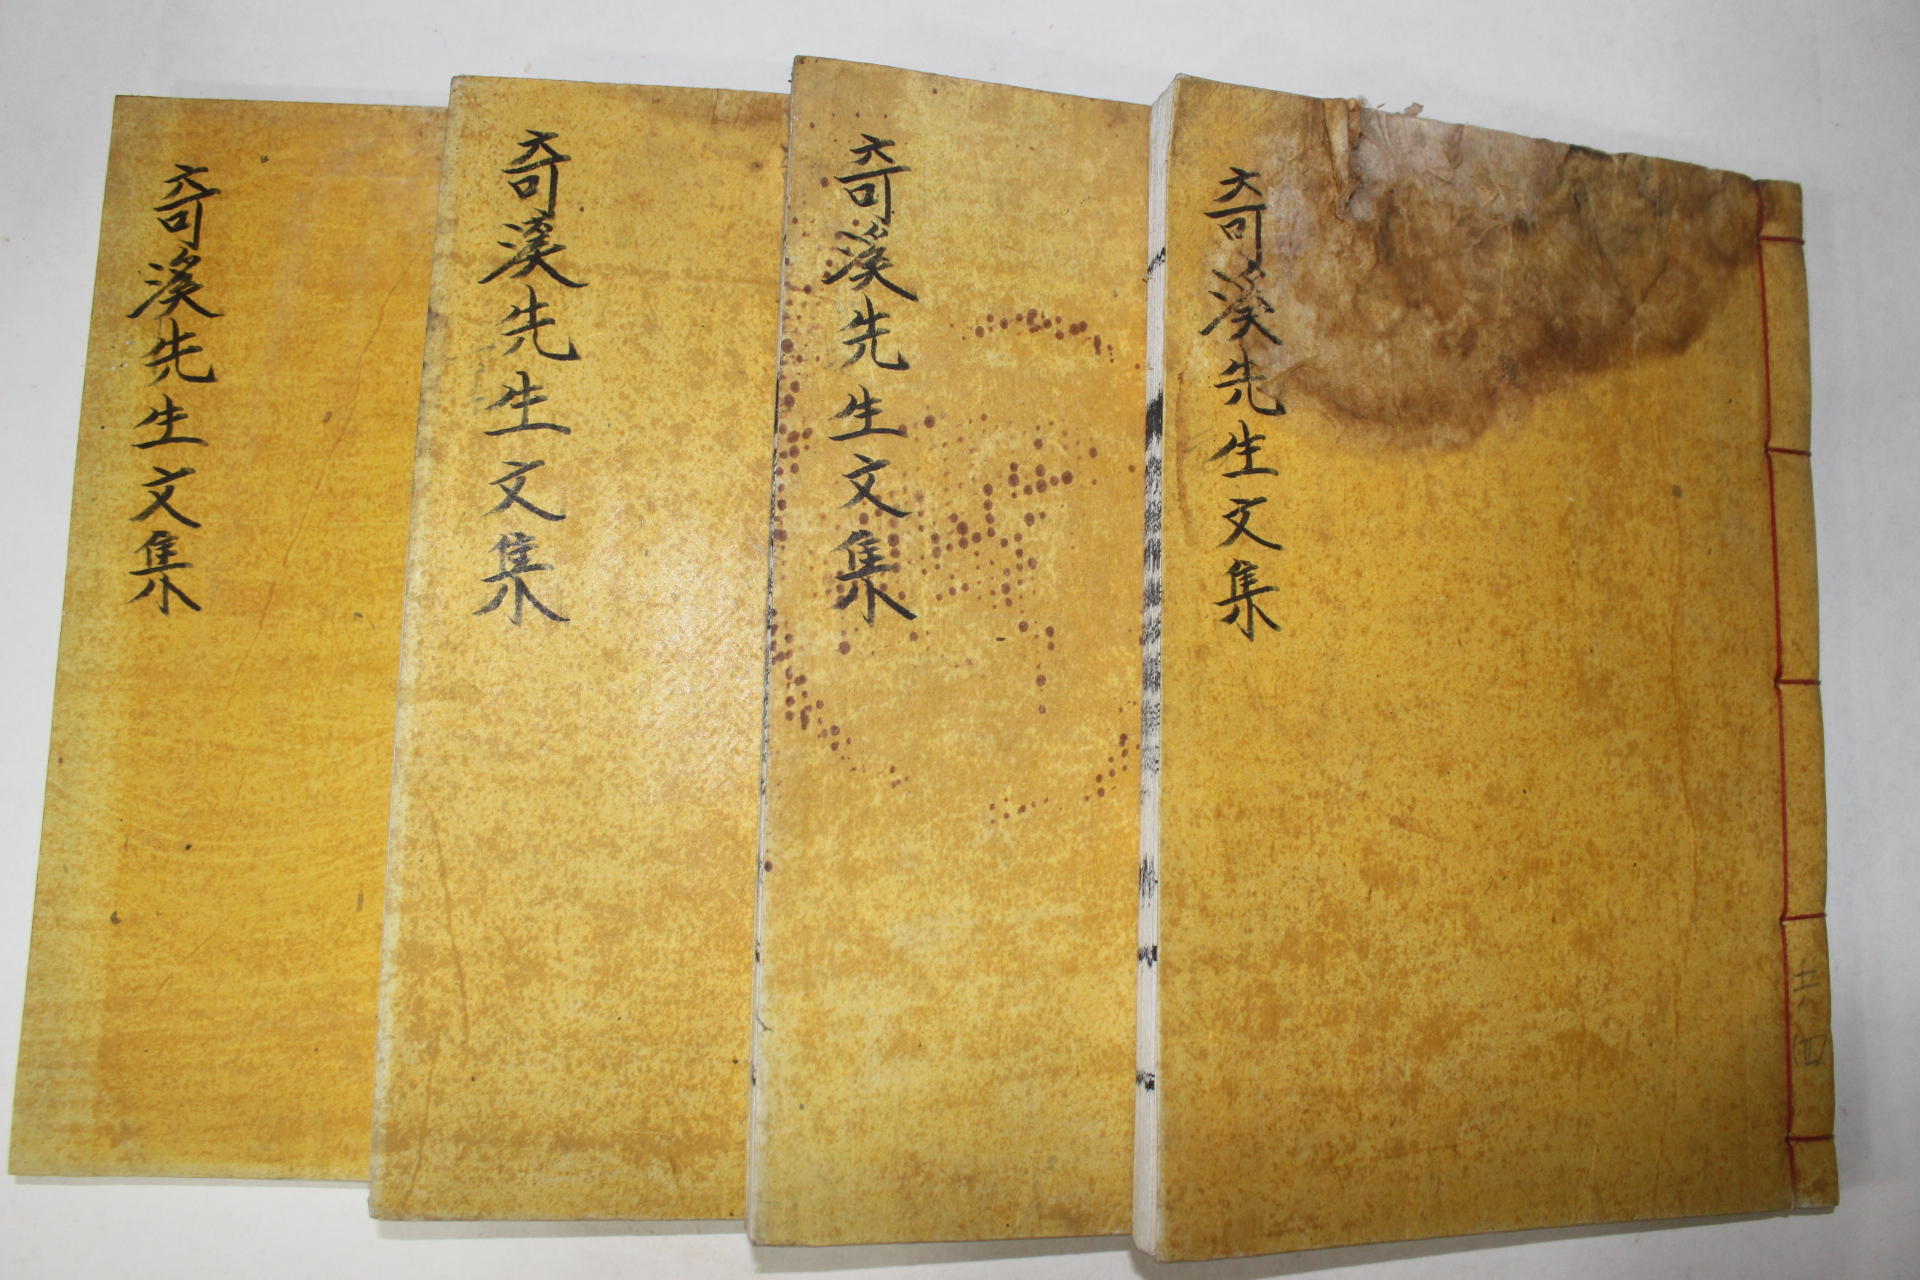 奇溪先生文集
奇溪先生文集
奇溪先生文集
奇溪先生文集